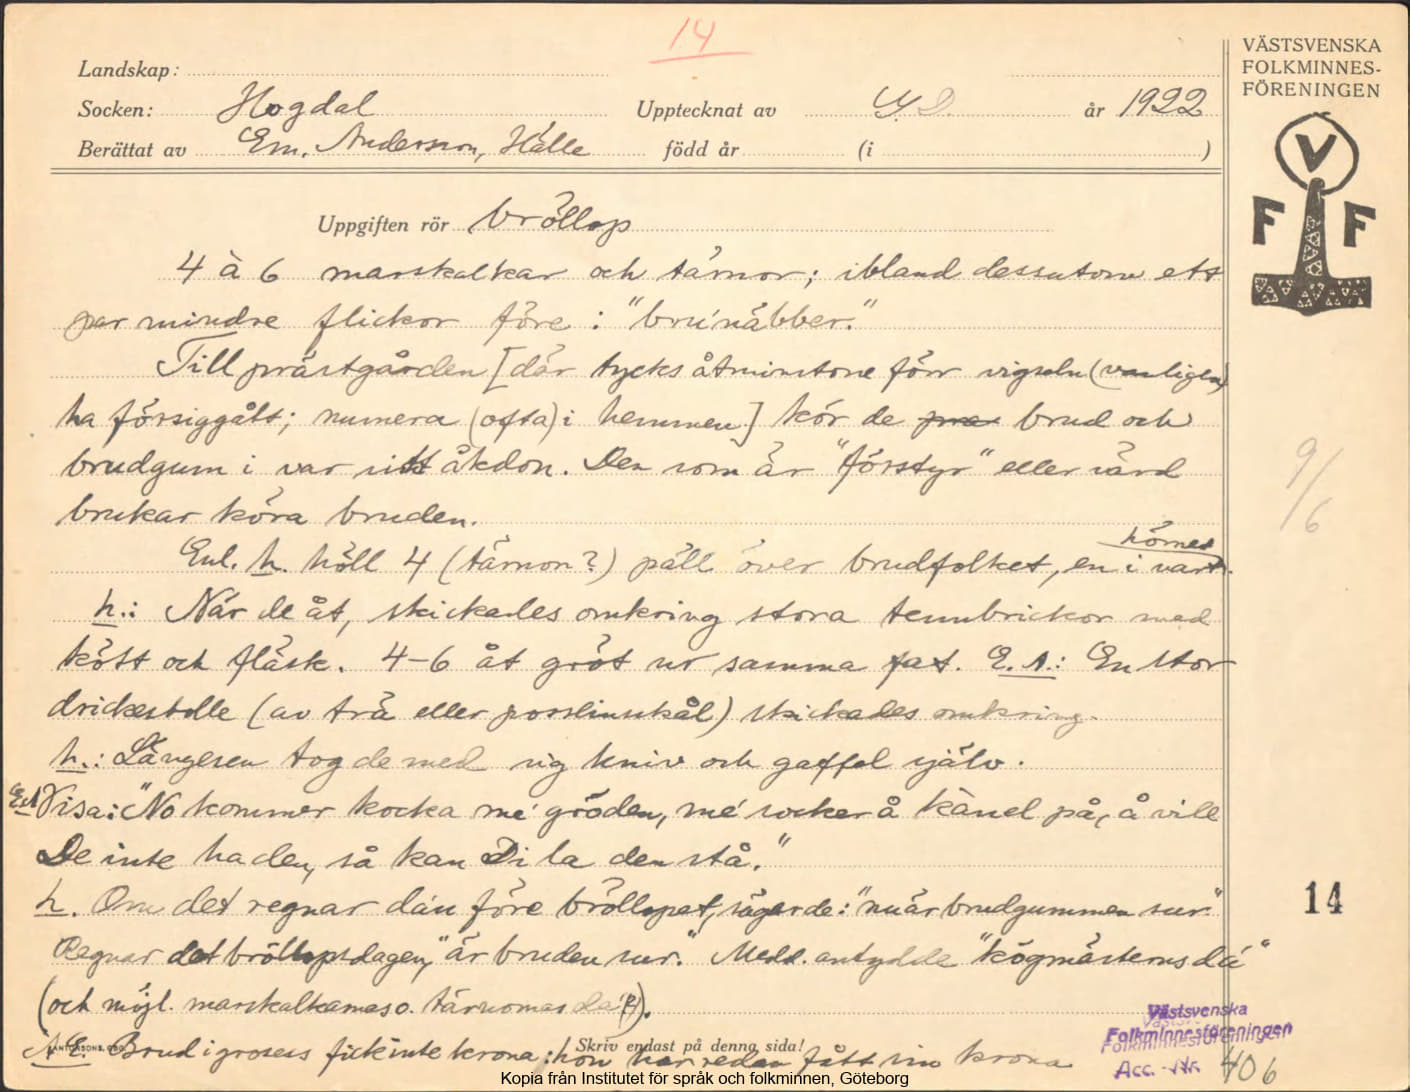 14
VÄSTSVENSKA
FOLKMINNES-
FÖRENINGEN
V
F F
Landskap:
Socken: Hogdal Upptecknat av år 1922
Berättat av Em. Andersson, Hälle född år (i )
Uppgiften rör bröllop
4 à 6 marskalkar och tärnor; ibland dessutom ett
par mindre flickor före: "bru'näbber."
Till prästgården [där tycks åtminstone förr vigseln (vanligen)
ha försiggått; numera (ofta) i hemmen] kör de brud och
brudgum i var sitt åkdon. Den som är "förstyr" eller värd
brukar köra bruden.
Enl. h. höll 4 (tärnor?) päll över brudfolket, en i vart hörnet.
h.: När de åt, skickades omkring stora tennbrickor med
kött och fläsk. 4-6 åt gröt ur samma fat. E.A.: En stor
drickesbolle (av trä eller porslinsskål) skickades omkring.
h.: Längesen tog de med sig kniv och gaffel själv.
EA Visa: "No kommer kocka me' gröden, me' socker å kanel på, å vill
De inte ha den, så kan Di la den stå."
h. Om det regnar dan före bröllopet, säger de: "nu är brudgummen sur."
Regnar det bröllopsdagen, "är bruden sur." Medd. antydde "kögmästerns da'"
(och möjl. marskalkarnas o. tärnornas da'(?)).
A.E. Brud i grosess fick inte krona; hon har redan fått sin krona
Skriv endast på denna sida!
9/6
14
Västsvenska
Folkminnesföreningen
Acc.-Nr. 406
Kopia från Institutet för språk och folkminnen, Göteborg